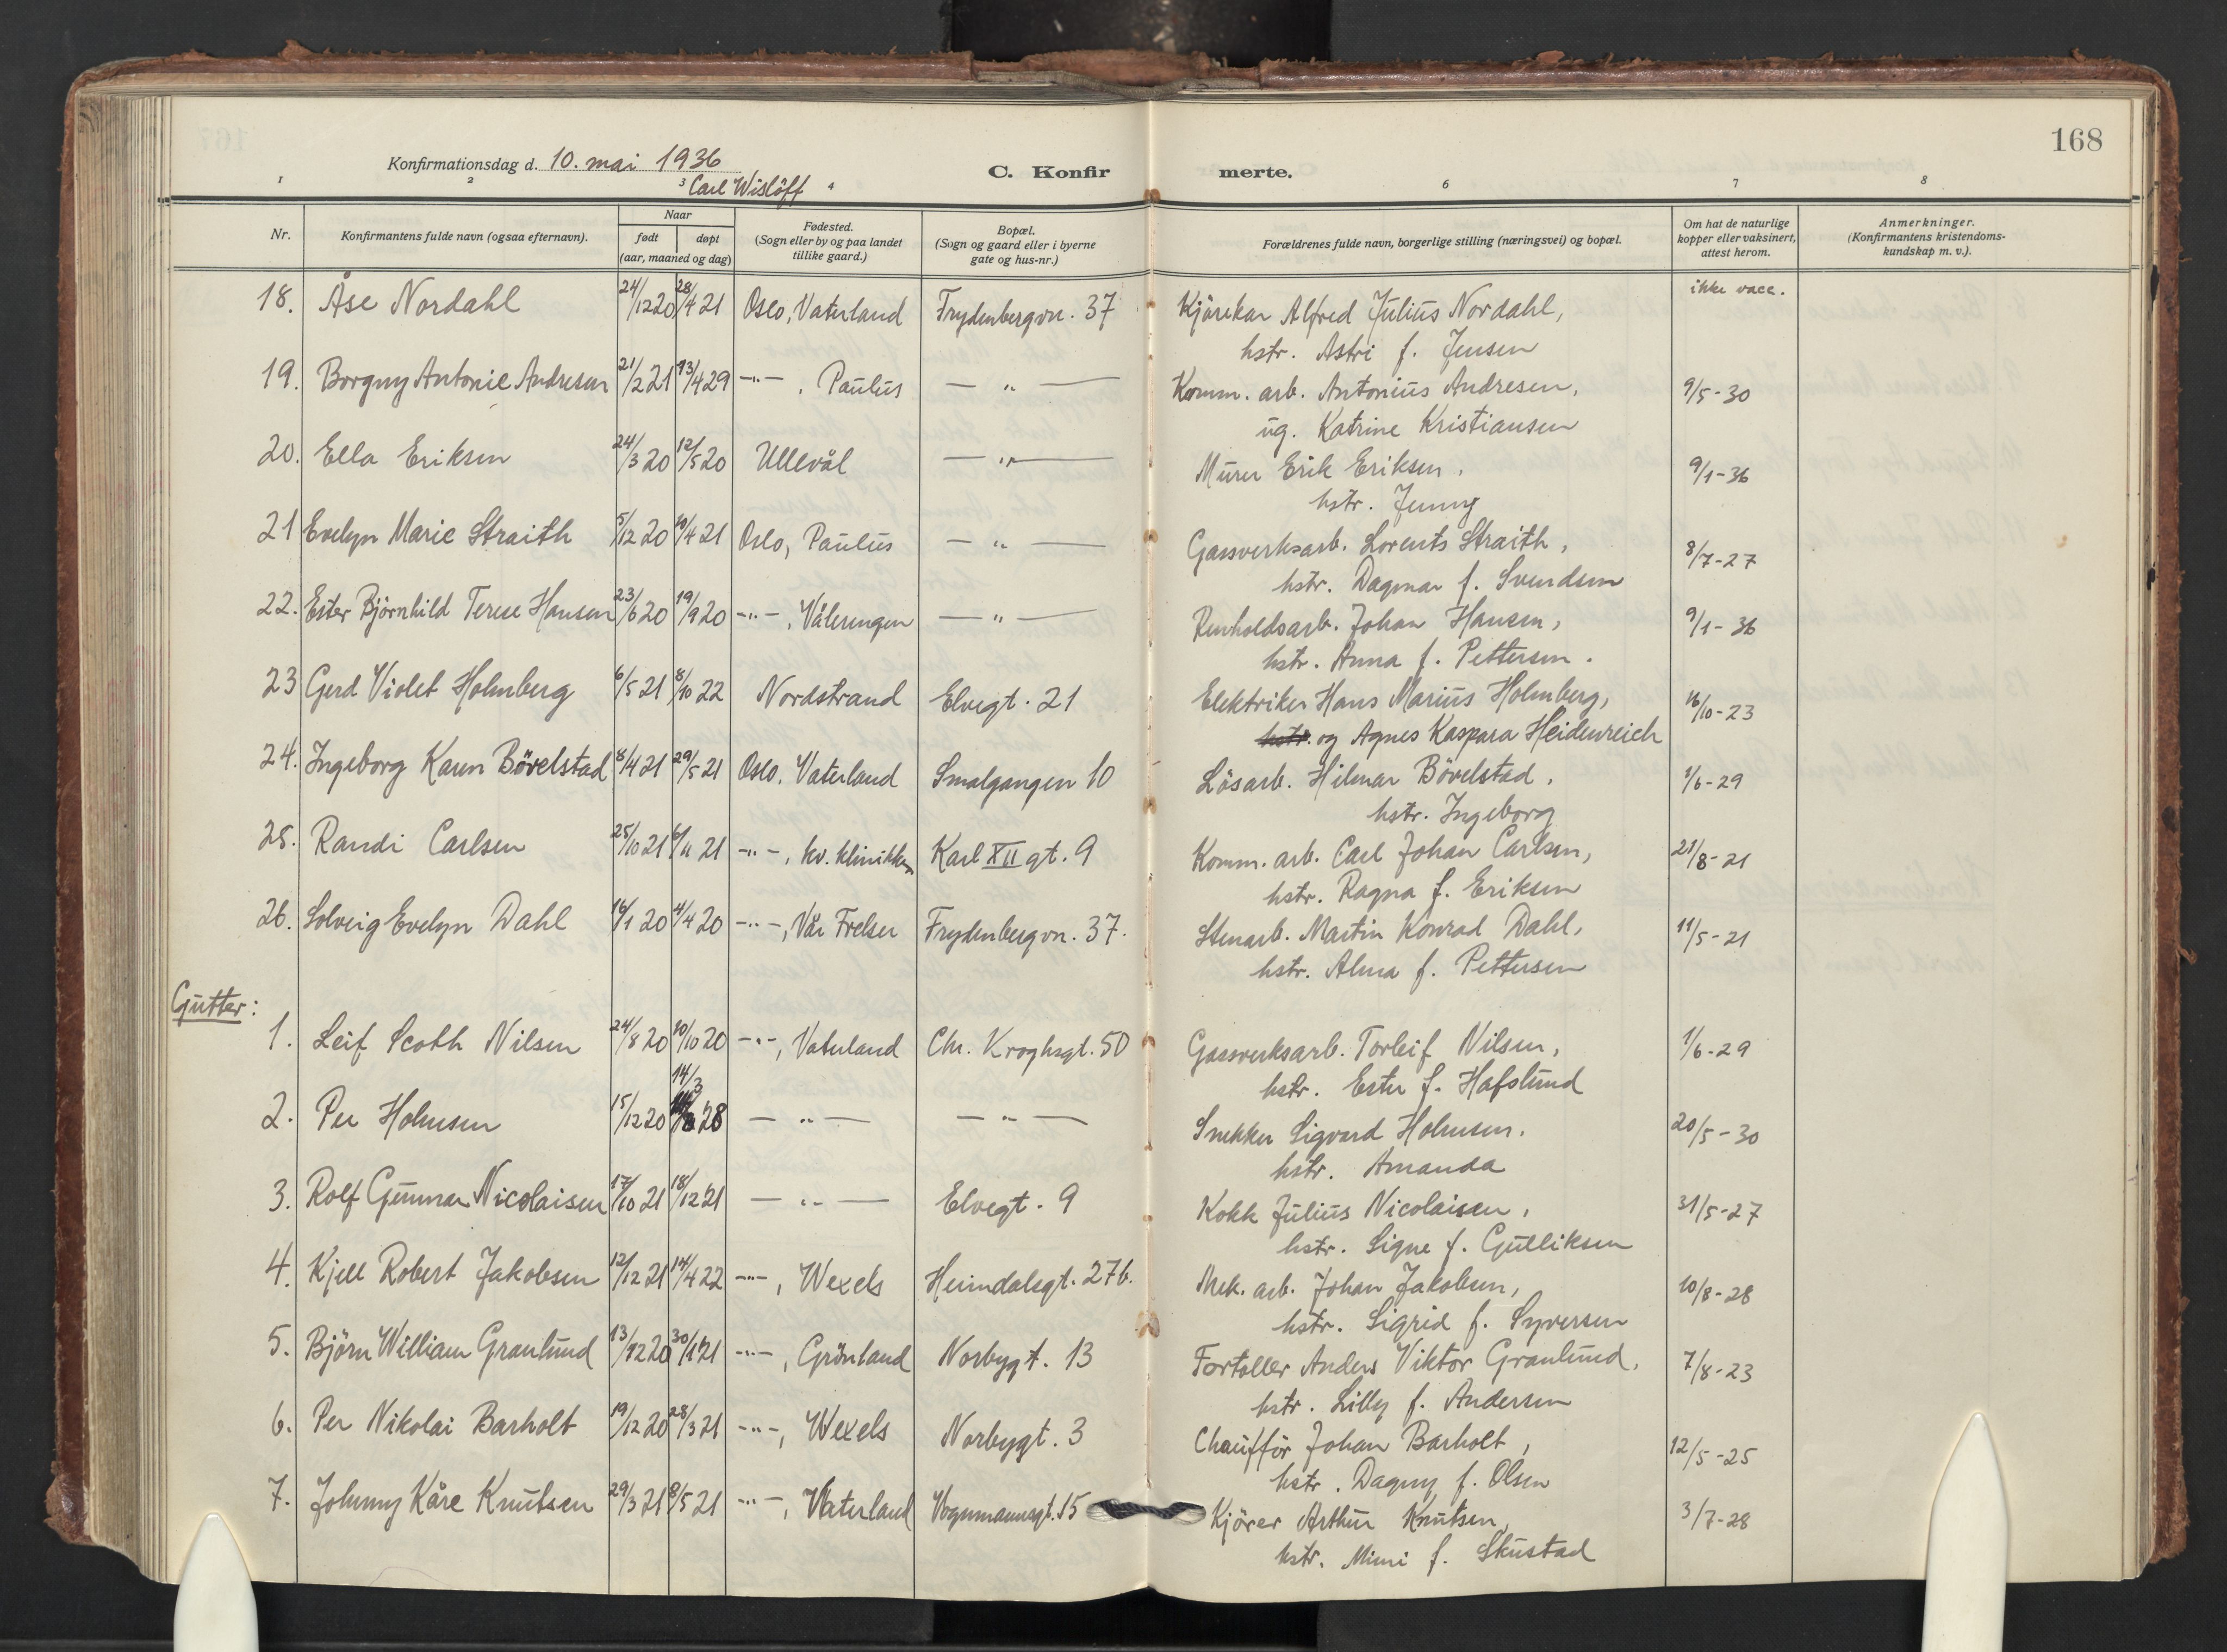 168
Konfirmationsdag d. 10. mai 1936
Carl Wislöff
C. Konfirmerte.
1 2 3 4 6 7 8
Nr.
Konfirmantens fulde navn (ogsaa efternavn).
Naar
født døpt
(aar, maaned og dag)
Fødested.
(Sogn eller by og paa landet
tillike gaard.)
Bopæl.
(Sogn og gaard eller i byerne
gate og hus-nr.)
Forældrenes fulde navn, borgerlige stilling (næringsvei) og bopæl.
Om hat de naturlige
kopper eller vaksinert,
attest herom.
Anmerkninger.
(Konfirmantens kristendoms-
kundskap m. v.).
18. Åse Nordahl 24/12 20 28/4 21 Oslo, Vaterland Frydenbergvn. 37 Kjörekar Alfred Julius Nordahl, ikke vacc.
hstr. Astri f. Jensen
19. Borgny Antonie Andresen 21/2 21 13/4 29 —"—, Paulus — " — Komm. arb. Antonius Andresen, 9/5-30
ug. Katrine Kristiansen
20. Ella Eriksen 24/3 20 12/5 20 Ullevål — " — Murer Erik Eriksen, 9/1-36
hstr. Jenny
21 Evelyn Marie Straith 5/12 20 10/4 21 Oslo, Paulus — " — Gassverksarb. Lorents Straith, 8/7-27
hstr. Dagmar f. Svendsen
22. Ester Björnhild Terese Hansen 23/6 20 19/9 20 —"—, Vålerengen — " — Renholdsarb. Johan Hansen, 9/1-36
hstr. Anna f. Pettersen.
23 Gerd Violet Holmberg 6/5 21 8/10 22 Nordstrand Elvegt. 21 Elektriker Hans Marius Holmberg, 16/10-23
hstr. og Agnes Kaspara Heidenreich
24. Ingeborg Karen Bövelstad 8/4 21 29/5 21 Oslo, Vaterland Smalgangen 10 Lösarb. Hilmar Bövelstad, 1/6-29
hstr. Ingeborg
25. Randi Carlsen 25/10 21 6/11 21 —"—, kv. klinikken Karl XII gt. 9 Komm. arb. Carl Johan Carlsen, 21/8-21
hstr. Ragna f. Eriksen
26. Solveig Evelyn Dahl 16/1 20 4/4 20 —"—, Vår Frelser Frydenbergvn. 37. Stenarb. Martin Konrad Dahl, 11/5-21
hstr. Alma f. Pettersen
Gutter:
1. Leif Scoth Nilsen 24/8 20 10/10 20 —"—, Vaterland Chr. Kroghsgt. 50 Gassverksarb. Torleif Nilsen, 1/6-29
hstr. Ester f. Hafslund
2. Per Holmsen 15/12 20 14/3 28 — " — — " — Snekker Sigvard Holmsen, 20/5-30
hstr. Amanda
3. Rolf Gunnar Nicolaisen 17/10 21 18/12 21 — " — Elvegt. 9 Kokk Julius Nicolaisen, 31/5-27
hstr. Signe f. Gulliksen
4. Kjell Robert Jakobsen 12/12 21 14/4 22 —"—, Wexels Heimdalsgt. 27b. Mek. arb. Johan Jakobsen, 10/8-28
hstr. Sigrid f. Syversen
5. Björn William Granlund 13/12 20 30/1 21 —"—, Grönland Norbygt. 13 Fortoller Anders Viktor Granlund, 7/8-23
hstr. Lilly f. Andersen
6. Per Nikolai Barholt 19/12 20 28/3 21 —"—, Wexels Norbygt. 3 Chaufför Johan Barholt, 12/5-25
hstr. Dagny f. Olsen
7. Johnny Kåre Knutsen 29/3 21 8/5 21 —"—, Vaterland Vognmannsgt. 15 Kjörer Arthur Knutsen, 3/7-28
hstr. Mimi f. Skustad